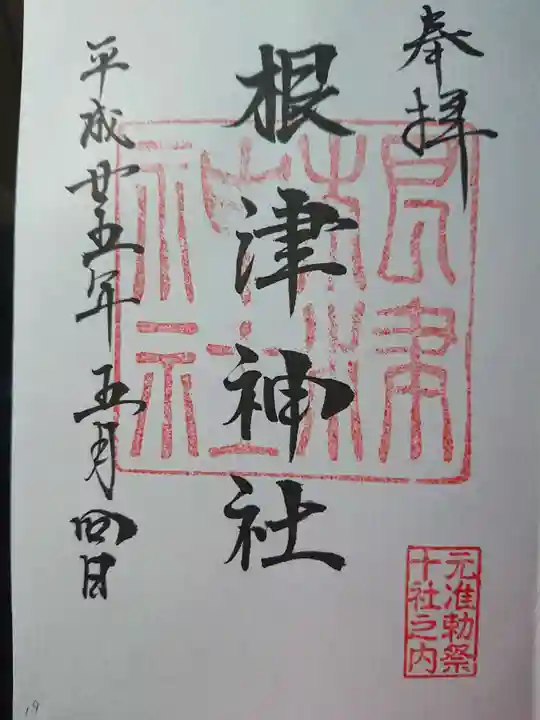 奉拝
元准勅祭
十社之内
根津神社
根津神社
平成廿五年五月四日
19